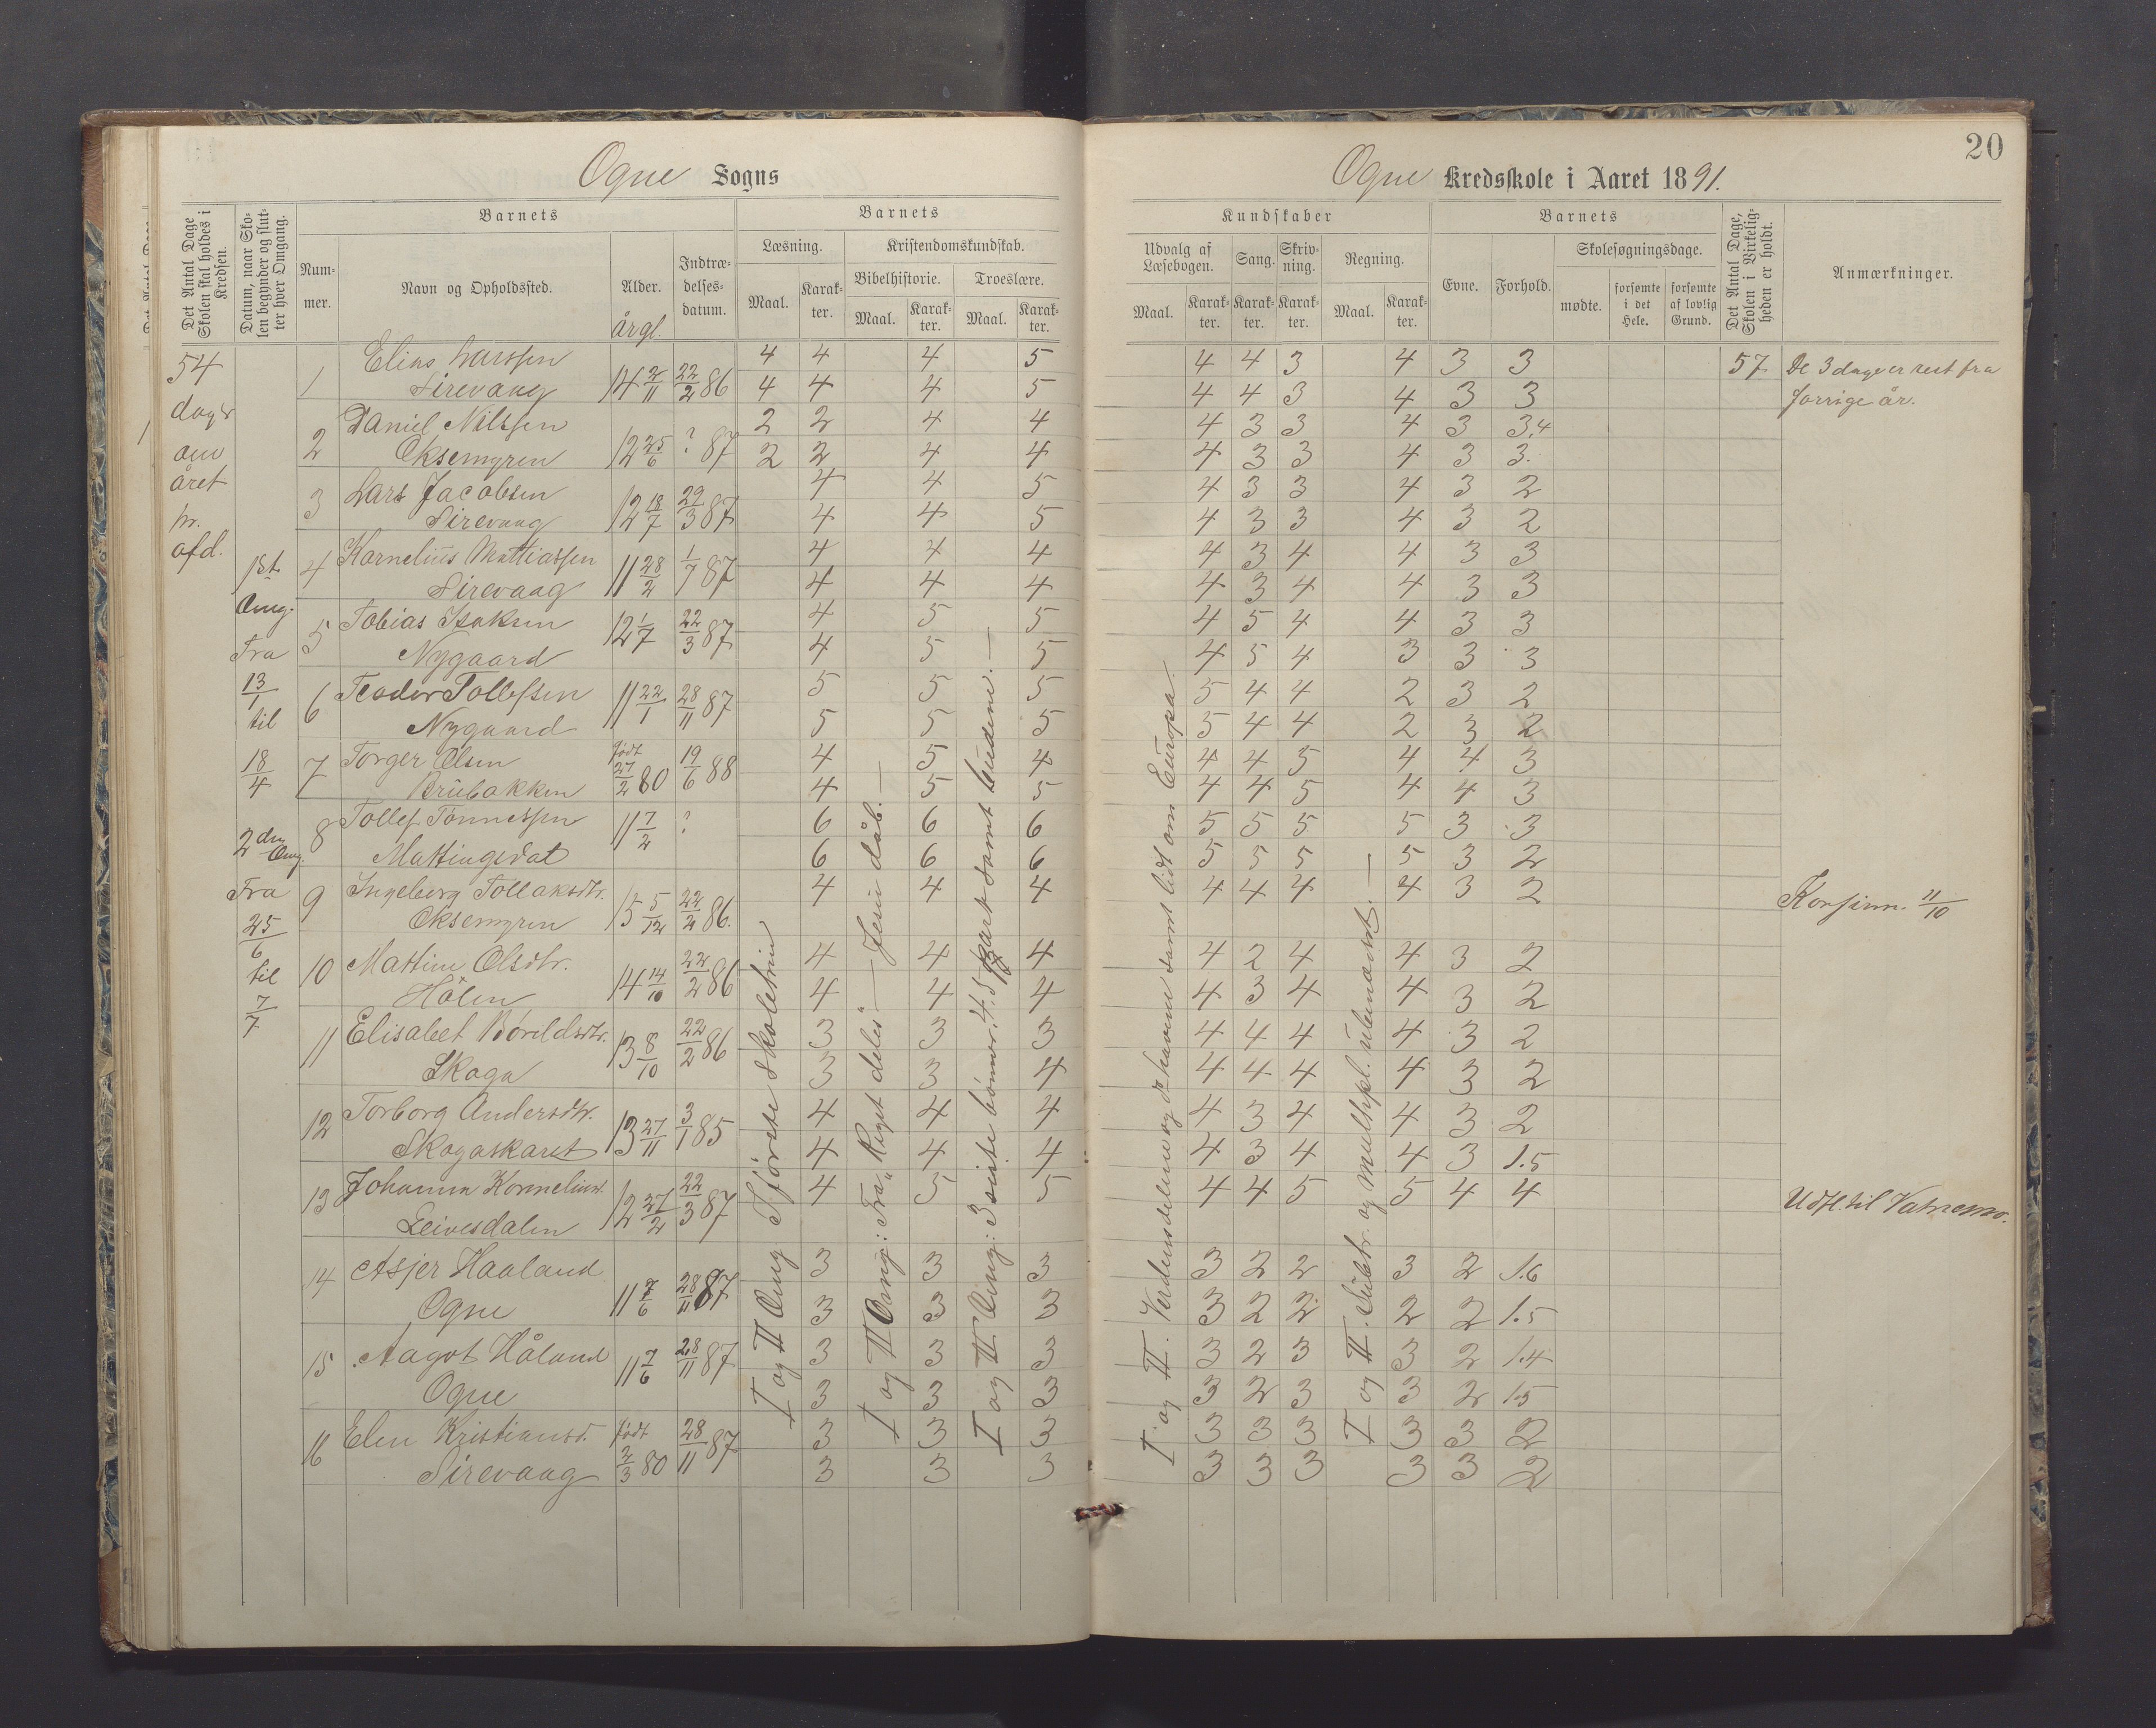 20
Ogne Sogns
Ogne Kredsskole i Aaret 1891.
Det Antal Dage Skolen skal holdes i Kredsen.
Datum, naar Skolen begynder og slutter hver Omgang.
Barnets
Nummer.
Navn og Opholdssted.
Alder.
årgl.
Indtrædelsesdatum.
Barnets
Læsning.
Maal.
Karakter.
Kristendomskundskab.
Bibelhistorie.
Maal.
Karakter.
Troeslære.
Maal.
Karakter.
Kundskaber
Udvalg af Læsebogen.
Maal.
Karakter.
Sang.
Karakter.
Skrivning.
Karakter.
Regning.
Maal.
Karakter.
Barnets
Evne.
Forhold.
Skolesøgningsdage.
mødte.
forsømte i det Hele.
forsømte af lovlig Grund.
Det Antal Dage, Skolen i Virkeligheden er holdt.
Anmærkninger.
54
dage
om
året
pr.
afd.
1st.
Omg.
Fra
13/1
til
18/4
2den Omg.
Fra
25/6
til
7/7
1 Elias Larssen 14 2/11 22/2 86 4 4 4 5 4 4 3 4 3 3 57 De 3 dage er rest fra
Sirevaag 4 4 4 5 4 4 3 4 3 3 forrige år.
2 Daniel Nilssen 12 25/6 ? 87 2 2 4 4 4 3 3 4 3 3,4
Oksemyren 2 2 4 4 4 3 3 4 3 3.
3 Lars Jacobsen 12 18/7 29/3 87 4 4 5 4 3 3 4 3 2
Sirevaag 4 4 5 4 3 3 4 3 2
4 Kornelius Mattiassen 11 28/2 1/7 87 4 4 4 4 3 4 4 3 3
Sirevaag 4 4 4 4 3 4 4 3 3
5 Tobias Isaksen 12 1/7 22/3 87 4 5 5 4 5 4 4 3 3
Nygaard 4 5 5 4 5 4 3 3 3
6 Teodor Tollefsen 11 22/1 28/11 87 5 5 5 5 4 4 2 3 2
Nygaard 5 5 5 5 4 4 2 3 2
7 Torger Olsen født 27/2 80 19/6 88 4 5 4 4 4 5 4 4 3
Brubakken 4 5 5 4 4 5 4 4 3
8 Tollef Tønnessen 11 7/2 ? 6 6 6 5 5 5 5 3 3
Mattingsdal 6 6 6 5 5 5 5 3 2
9 Ingeborg Tollaksdtr. 15 5/12 22/2 86. 4 4 4 4 4 4 4 3 2 Konfirm. 11/10
Oksemyren
10 Mattine Olsdtr. 14 14/10 22/2 86 4 4 4 4 2 4 4 3 2
Hålen 4 4 4 4 3 4 4 3 2
11 Elisabet Bårildsdtr. 13 8/10 22/2 86 3 3 3 4 4 4 4 3 2
Skoga 3 3 4 4 4 4 4 3 2
12 Torborg Andersdtr. 13 27/11 3/1 85 4 4 4 4 3 4 4 3 2
Skogaskaret 4 4 4 4 3 4 4 3 1.5
13 Johanna Korneliusd. 12 27/2 22/3 87 4 5 5 4 4 5 5 4 4 Udfl. til Vatnemo.
Leivesdalen
14 Asjer Haaland 11 7/6 28/11 87 3 3 3 3 2 2 3 2 1.6
Ogne 3 3 3 3 2 2 2 2 1.5
15 Aagot Håland 11 7/6 28/11 87 3 3 3 3 2 3 3 2 1.4
Ogne 3 3 3 3 2 3 3 2 1.5
16 Elen Kristiansd. født 2/3 80 28/11 87 3 3 3 3 3 3 3 3 2
Sirevaag 3 3 3 3 3 3 3 3 2
I og II Omg. Første skoletrin
I og II Omg: Fra "Riget deles" — Jesu dåb. —
I og II Omg: 3 siste bønner, 4. 5 part samt budene. —
I og II. Verdensdelene og dehavene samt lidt om Europa.
I og II. Subtr. og multipl. ubenævnt. —